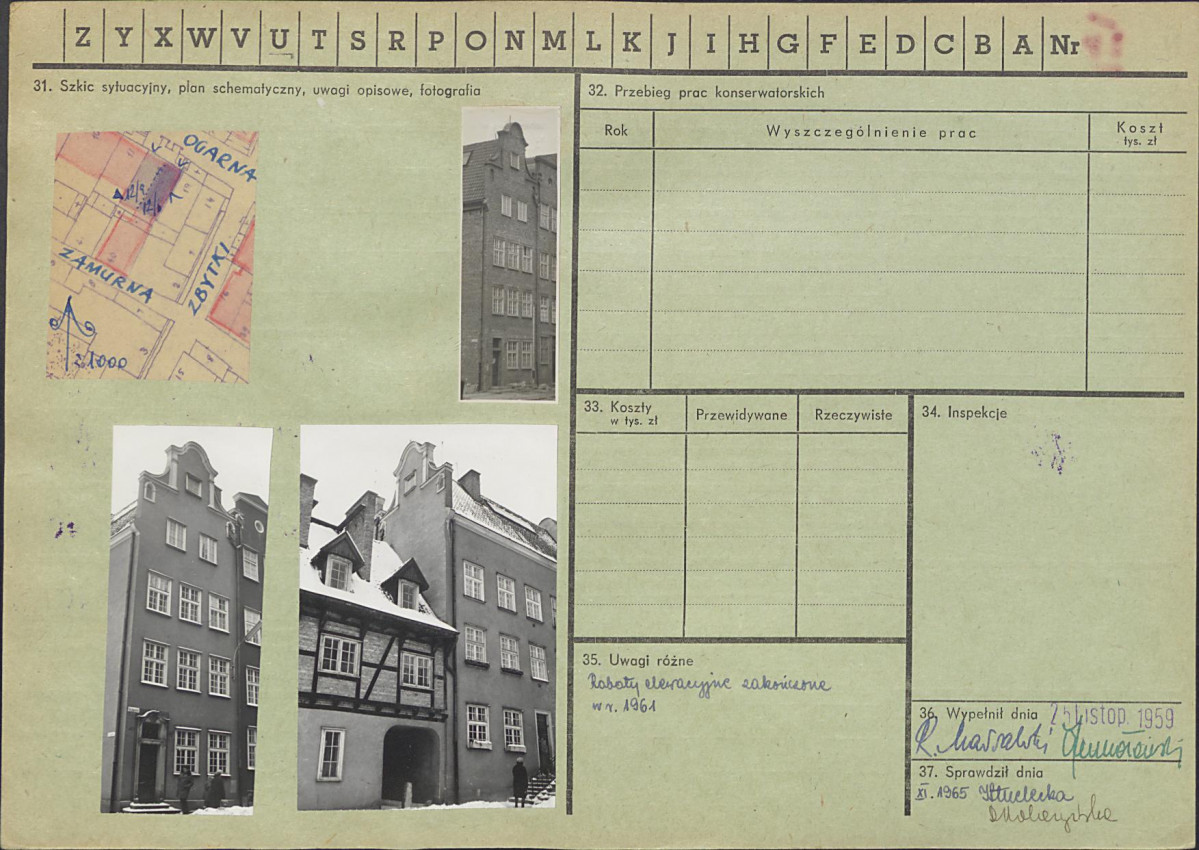 Z Y X W V U T S R P O N M L K J I H G F E D C B A Nr
31. Szkic sytuacyjny, plan schematyczny, uwagi opisowe, fotografia
OGARNA
ZAMURNA
ZBYTKI
1:1000
32. Przebieg prac konserwatorskich
Rok
Wyszczególnienie prac
Koszt
tys. zł
33. Koszty
w tys. zł
Przewidywane
Rzeczywiste
34. Inspekcje
35. Uwagi różne
Roboty elewacyjne zakończone
w r. 1961
36. Wypełnił dnia 25 listop. 1959
R. Massalski
37. Sprawdził dnia
XI. 1965